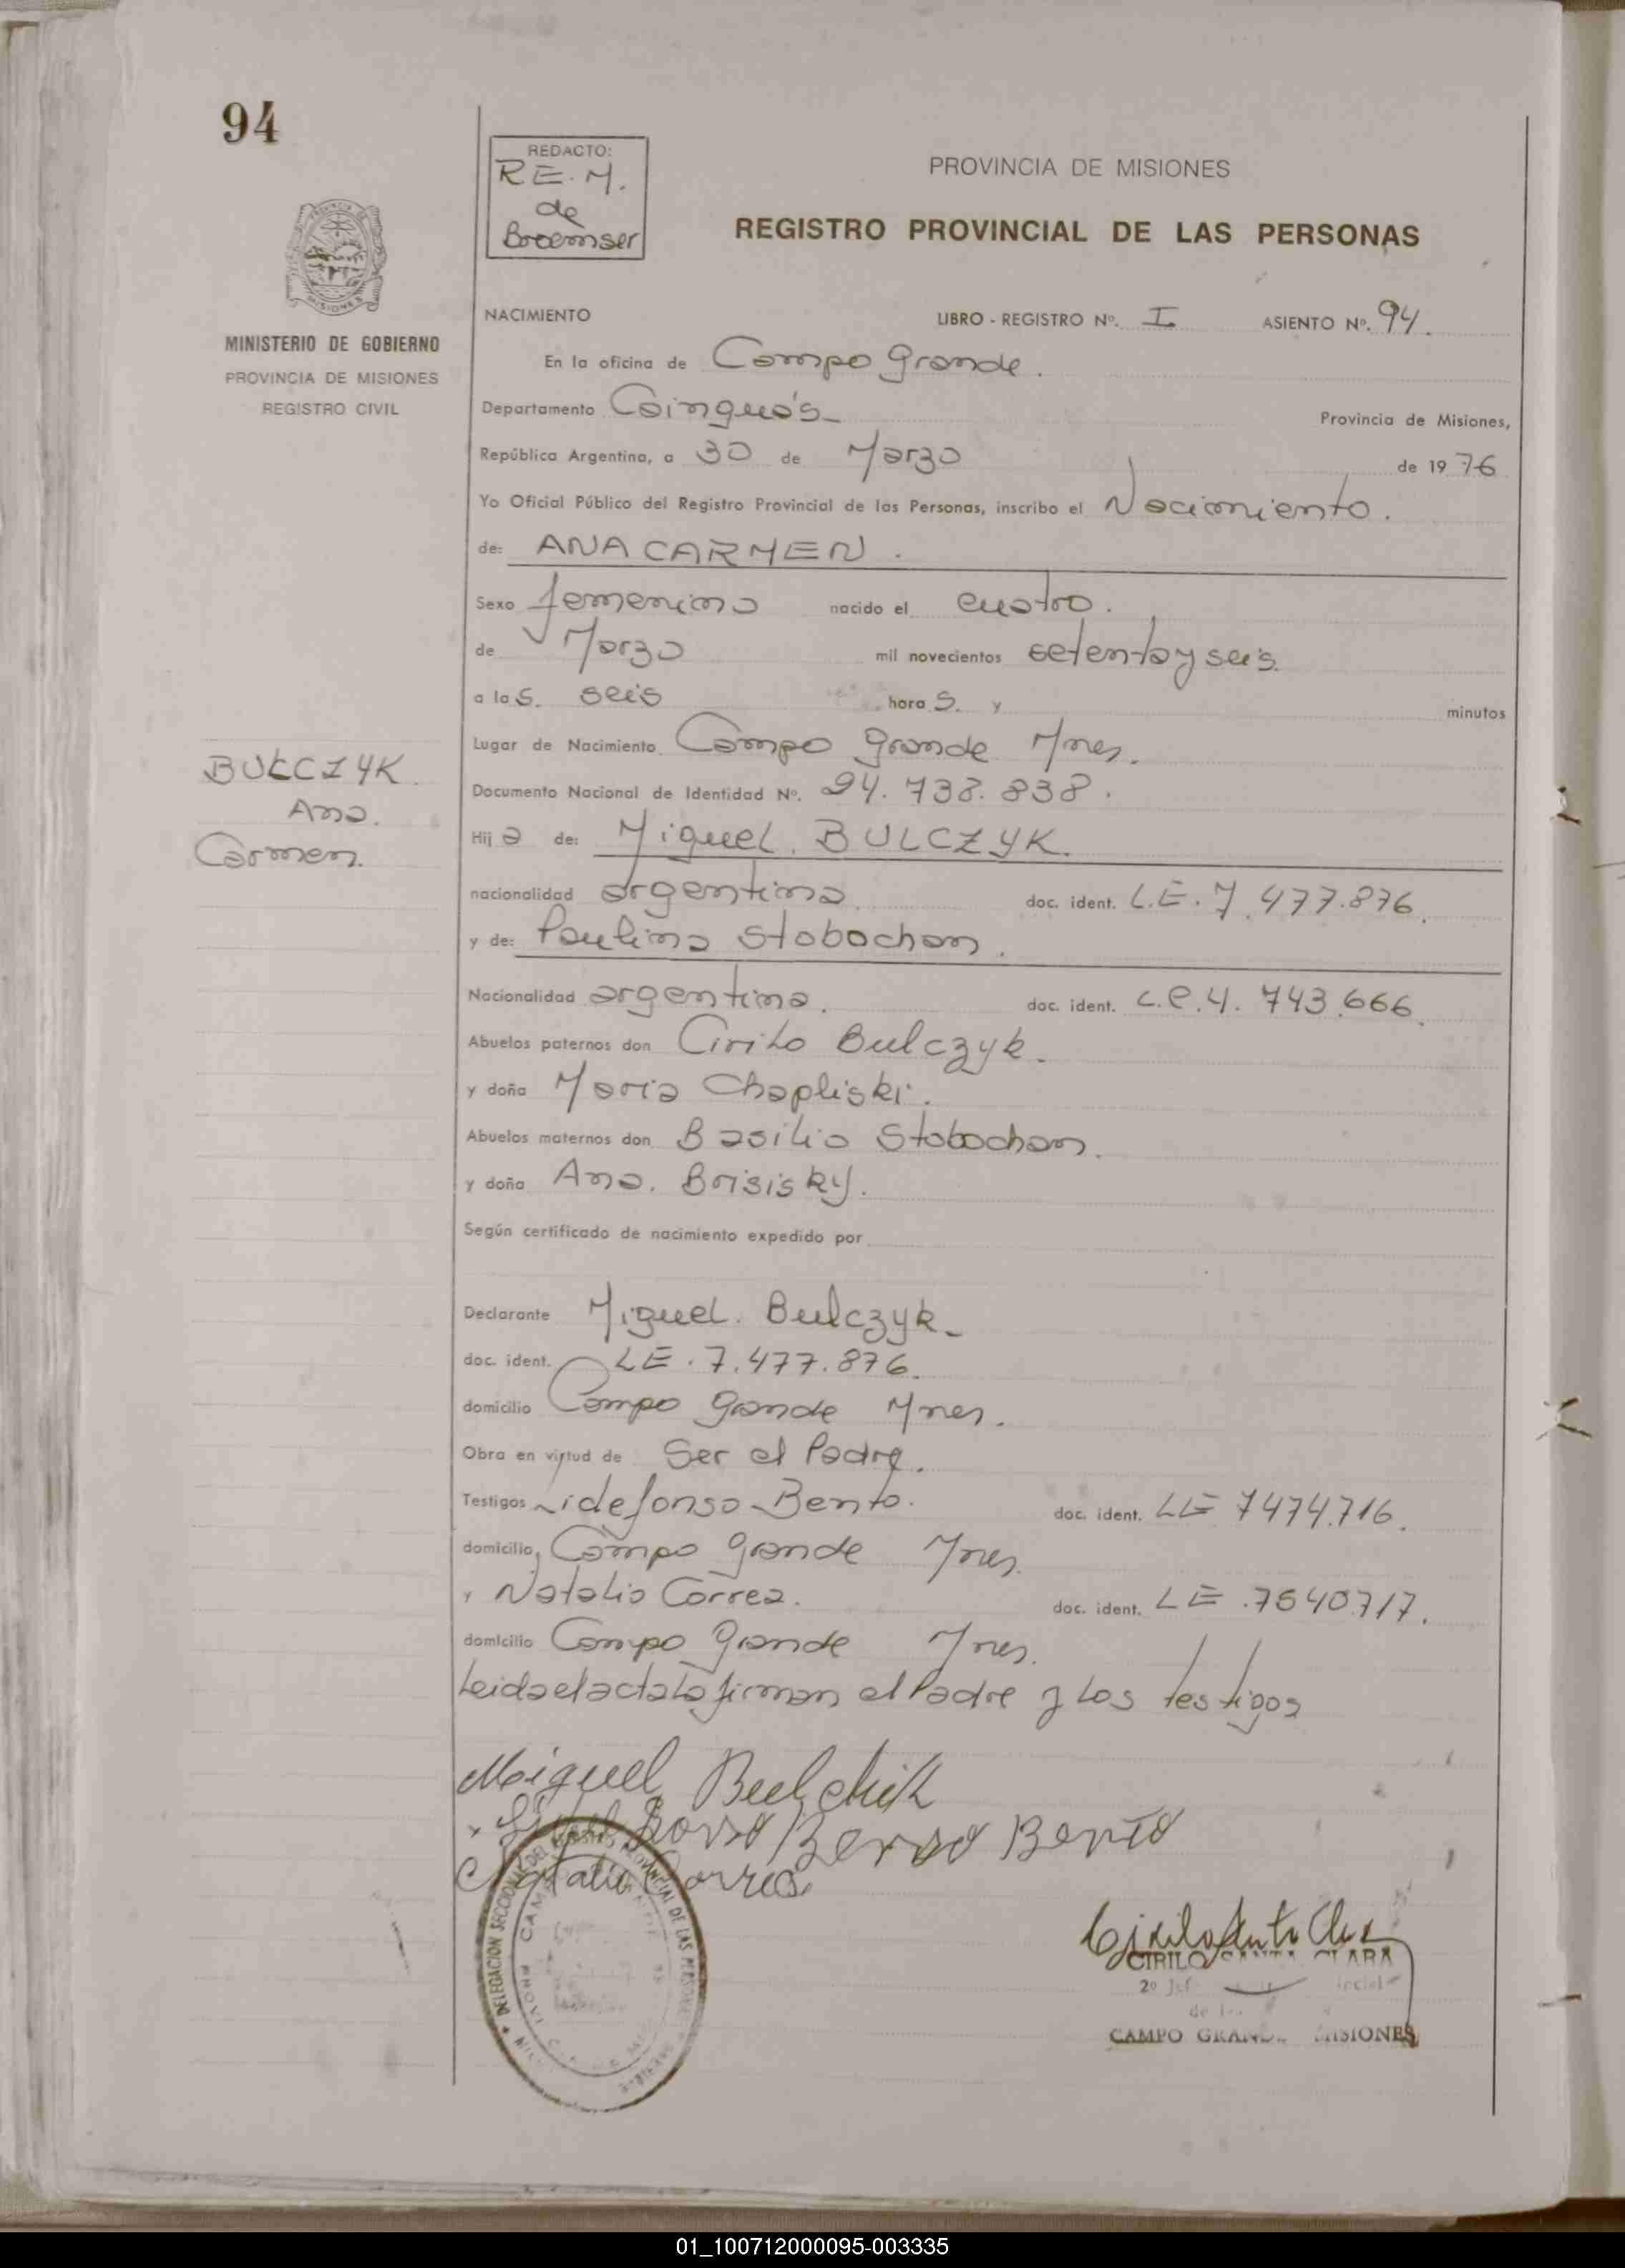 94
REDACTO:
R.E.M.
de
Broemser
PROVINCIA DE MISIONES
REGISTRO PROVINCIAL DE LAS PERSONAS
MINISTERIO DE GOBIERNO
PROVINCIA DE MISIONES
REGISTRO CIVIL
NACIMIENTO LIBRO - REGISTRO Nº. I ASIENTO Nº. 94.
En la oficina de Campo Grande.
Departamento Cainguás Provincia de Misiones,
República Argentina, a 30 de Marzo de 1976
Yo Oficial Público del Registro Provincial de las Personas, inscribo el Nacimiento.
de: ANA CARMEN.
Sexo femenino nacido el cuatro.
de Marzo mil novecientos setentayseis.
a las. seis horas. y minutos
Lugar de Nacimiento Campo Grande Mnes.
BULCZYK.
Ana.
Carmen.
Documento Nacional de Identidad Nº. 24.738.838.
Hija de: Miguel. BULCZYK.
nacionalidad argentina doc. ident. L.E. 7.477.876.
y de: Paulina Stobochan.
Nacionalidad argentina. doc. ident. L.C. 4. 743.666.
Abuelos paternos don Cirilo Bulczyk.
y doña Maria Chapliski.
Abuelos maternos don Basilio Stobochan.
y doña Ana. Brisisky.
Según certificado de nacimiento expedido por
Declarante Miguel. Bulczyk
doc. ident. LE. 7.477.876.
domicilio Campo Grande Mnes.
Obra en virtud de Ser el Padre.
Testigos Lidefonso Bento. doc. ident. LE 7474.716.
domicilio, Campo Grande Mnes.
y Natalio Correa. doc. ident. LE .7540.717.
domicilio Campo Grande Mnes.
Leidaelactalafirman el Padre y los testigos
Miguel Bulchik
Bento
Natalio Correa
DELEGACION SECCIONAL DEL REGISTRO PROVINCIAL DE LAS PERSONAS
CIRILO SANTA CLARA
CAMPO GRANDE MISIONES
01_100712000095-003335